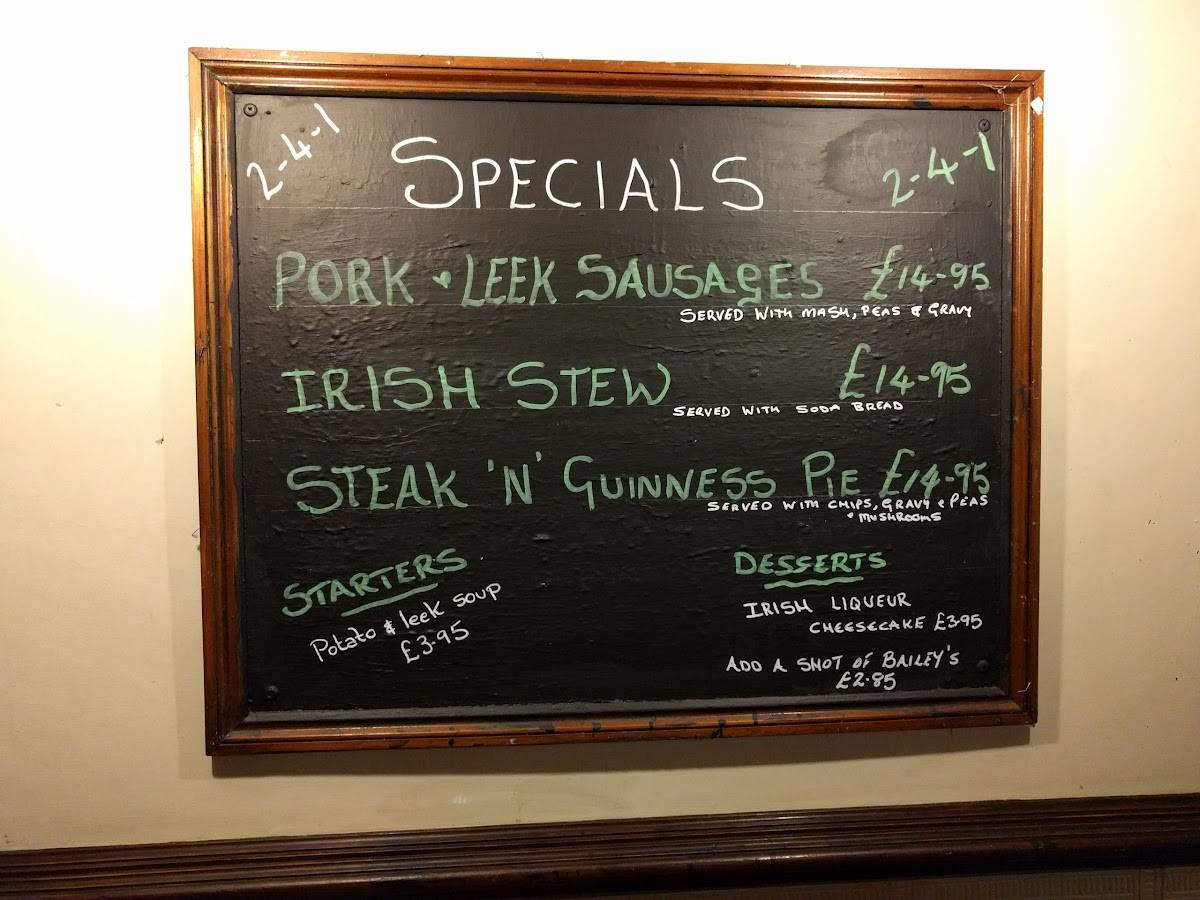 2-4-1
SPECIALS
2-4-1
PORK & LEEK SAUSAGES £14-95
SERVED WITH MASH, PEAS & GRAVY
IRISH STEW £14-95
SERVED WITH SODA BREAD
STEAK 'N' GUINNESS PIE £14-95
SERVED WITH CHIPS, GRAVY & PEAS
& MUSHROOMS
STARTERS
Potato & leek soup
£3.95
DESSERTS
IRISH LIQUEUR
CHEESECAKE £3.95
ADD A SHOT OF BAILEY'S
£2.85